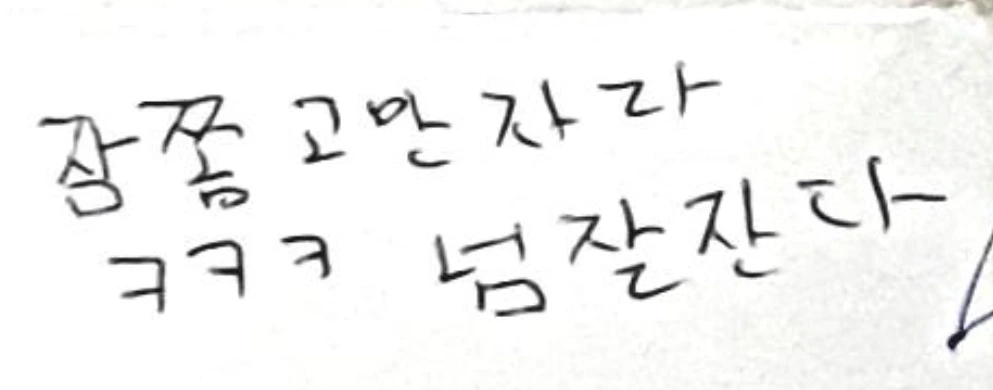 잠쫌 고만 자라
ㅋㅋㅋ 넘 잘잔다